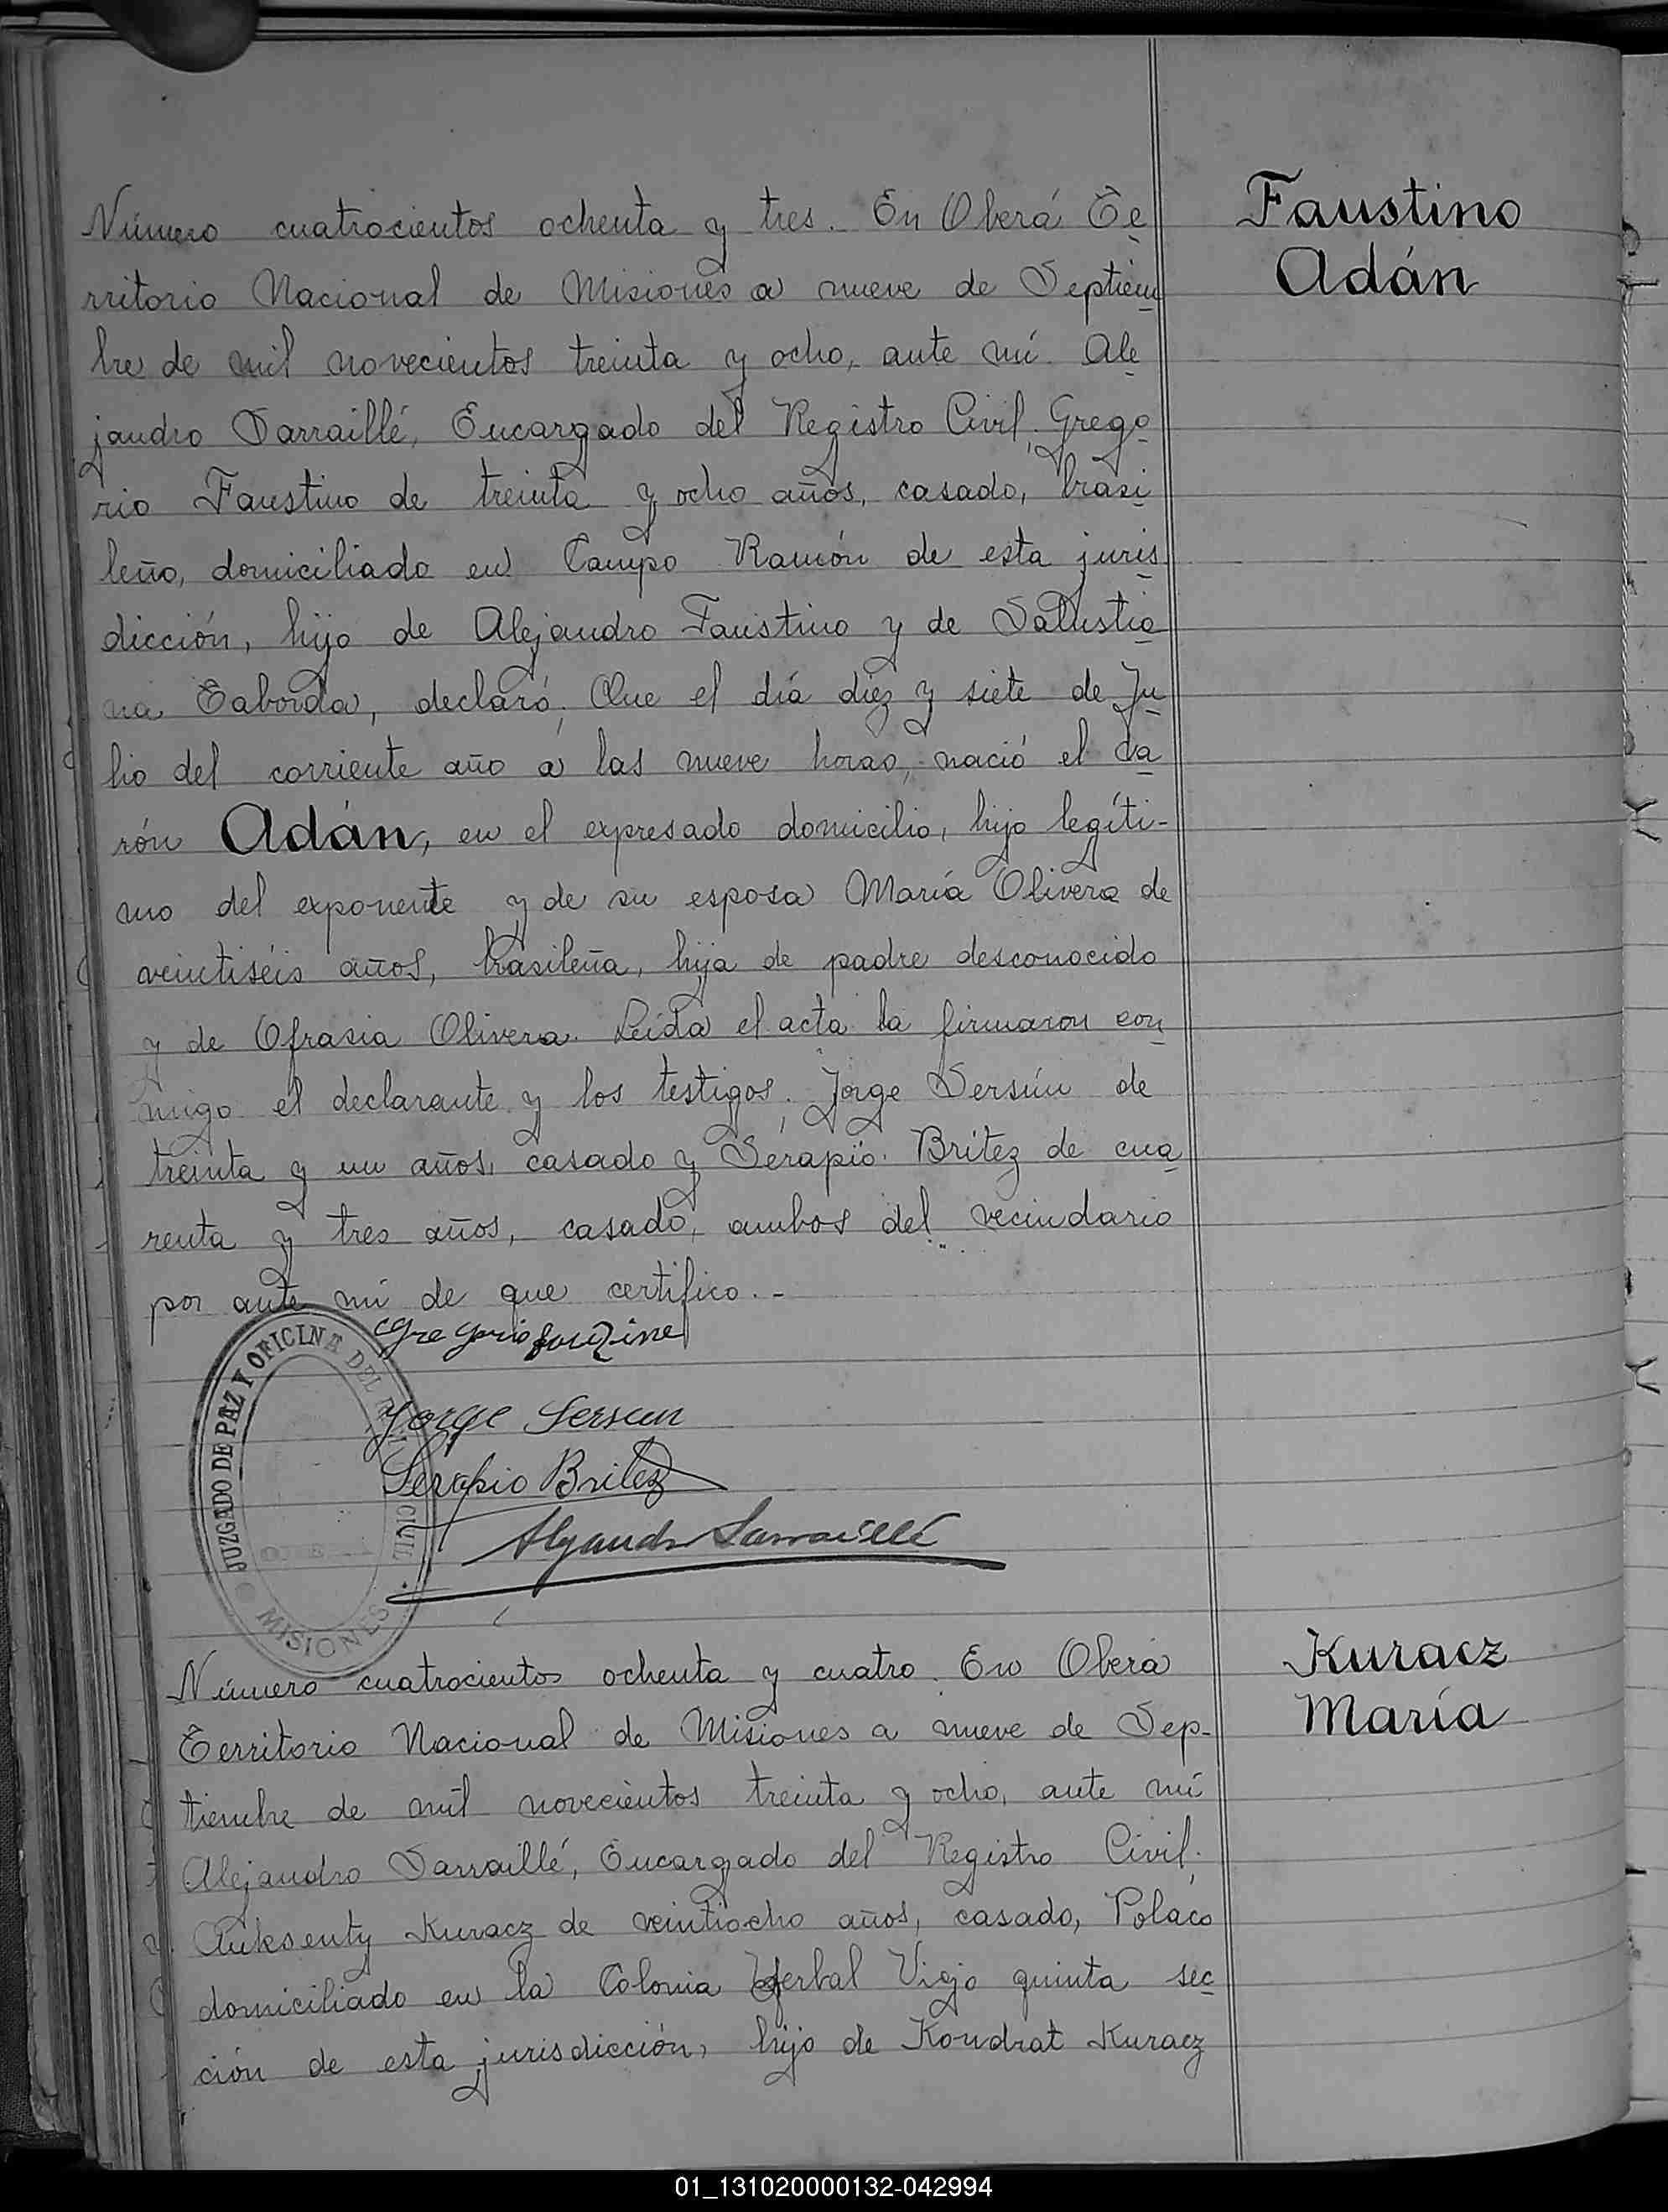 Número cuatrocientos ochenta y tres. En Oberá Te
rritorio Nacional de Misiones a nueve de Septiem
bre de mil novecientos treinta y ocho, ante mí Ale
jandro Sarraillé, Encargado del Registro Civil; Grego
rio Faustino de treinta y ocho años, casado, brasi
leño, domiciliado en Campo Ramón de esta juris
dicción, hijo de Alejandro Faustino y de Salustia
na Taborda, declaró; Que el día diez y siete de Ju
lio del corriente año a las nueve horas, nació el va
rón Adán, en el expresado domicilio, hijo legíti-
mo del exponente y de su esposa María Olivera de
veintiséis años, brasileña, hija de padre desconocido
y de Ofrasia Olivera. Leída el acta la firmaron con
migo el declarante y los testigos; Jorge Sersún de
treinta y un años, casado y Serapio Britez de cua
renta y tres años, casado, ambos del vecindario
por ante mí de que certifico.-
Faustino
Adán
Gregorio
Jorge Sersun
Serapio Britez
Alejandro Sarraillé
JUZGADO DE PAZ Y OFICINA DEL CIVIL
MISIONES
Número cuatrocientos ochenta y cuatro. En Oberá
Territorio Nacional de Misiones a nueve de Sep-
tiembre de mil novecientos treinta y ocho, ante mí
Alejandro Sarraillé, Encargado del Registro Civil;
Auksenty Kuracz de veintiocho años, casado, Polaco
domiciliado en la Colonia Yerbal Viejo quinta sec
ción de esta jurisdicción, hijo de Kondrat Kuracz
Kuracz
María
01_131020000132-042994